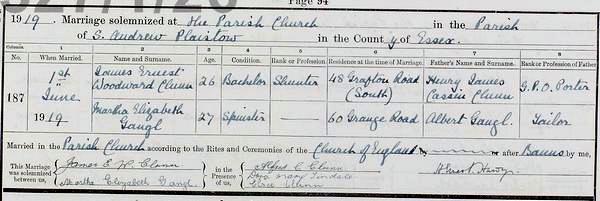 Page 94
1919. Marriage solemnized at the Parish Church in the Parish
of S. Andrew Plaistow in the County of Essex.
Columns:— 1 2 3 4 5 6 7 8
No. When Married. Name and Surname. Age. Condition. Rank or Profession. Residence at the time of Marriage. Father's Name and Surname. Rank or Profession of Father.
187 1st June 1919
James Ernest Woodward Clunn 26 Bachelor Shunter 48 Grafton Road (South) Henry James Cassin Clunn G.P.O. Porter
Martha Elizabeth Gangl 27 Spinster — 60 Grange Road Albert Gangl. Tailor
Married in the Parish Church according to the Rites and Ceremonies of the Church of England by or after Banns by me,
This Marriage was solemnized between us,
James E. W. Clunn
Martha Elizabeth Gangl.
in the Presence of us,
Alfred C Clunn
Dora Mary
Elsie Clunn